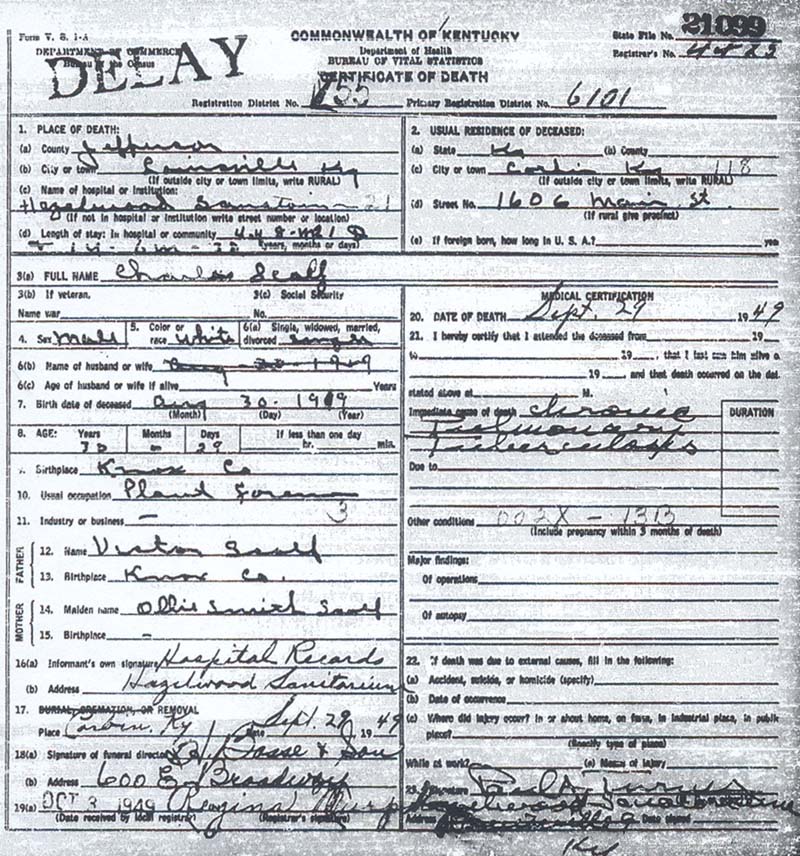 Form V. S. 1-A
COMMONWEALTH OF KENTUCKY
State File No. 21099
DEPARTMENT OF COMMERCE
Department of Health
Registrar's No.
Bureau of the Census
BUREAU OF VITAL STATISTICS
DELAY
CERTIFICATE OF DEATH
Registration District No. 755 Primary Registration District No. 6101
1. PLACE OF DEATH:
(a) County Jefferson
(b) City or town Ky
(If outside city or town limits, write RURAL)
(c) Name of hospital or institution:
Hazelwood 21
(If not in hospital or institution write street number or location)
(d) Length of stay: In hospital or community
years, months or days)
2. USUAL RESIDENCE OF DECEASED:
(a) State Ky (b) County
(c) City or town Corbin Ky 118
(If outside city or town limits, write RURAL)
(d) Street No. 1606 Main St
(If rural give precinct)
(e) If foreign born, how long in U. S. A.? yea
3(a) FULL NAME Charles Scalf
3(b) If veteran, 3(c) Social Security
Name war No.
4. Sex Male 5. Color or race White 6(a) Single, widowed, married, divorced
6(b) Name of husband or wife Aug 30 - 1949
6(c) Age of husband or wife if alive Years
7. Birth date of deceased Aug 30 - 1919
(Month) (Day) (Year)
8. AGE: Years Months Days If less than one day
30 - 29 hr. min.
9. Birthplace Knox Co
10. Usual occupation
11. Industry or business - 3
FATHER
12. Name Victor Scalf
13. Birthplace Knox Co.
MOTHER
14. Maiden name Ollie Smith Scalf
15. Birthplace -
16(a) Informant's own signature Hospital Records
(b) Address Hazelwood Sanitorium
17. BURIAL, CREMATION, OR REMOVAL
Place Corbin, Ky Date Sept. 29 1949
18(a) Signature of funeral director Bosse & Son
(b) Address 600 E. Broadway
19(a) OCT 3 1949 Regina
(Date received by local registrar) (Registrar's signature)
MEDICAL CERTIFICATION
20. DATE OF DEATH Sept. 29 1949
21. I hereby certify that I attended the deceased from 19
to 19, that I last saw him alive o
19 and that death occurred on the dat
stated above at M.
Immediate cause of death Chronic
Pulmonary
Tuberculosis
DURATION
Due to
Other conditions 002X - 13B
(Include pregnancy within 3 months of death)
Major findings:
Of operations
Of autopsy
22. If death was due to external causes, fill in the following:
(a) Accident, suicide, or homicide (specify)
(b) Date of occurrence
(c) Where did injury occur? In or about home, on farm, in industrial place, in public
place?
(Specify type of place)
While at work? (e) Means of injury
23. Signature Paul A. Turner
Hazelwood Sanatorium
Address Date signed
Ky